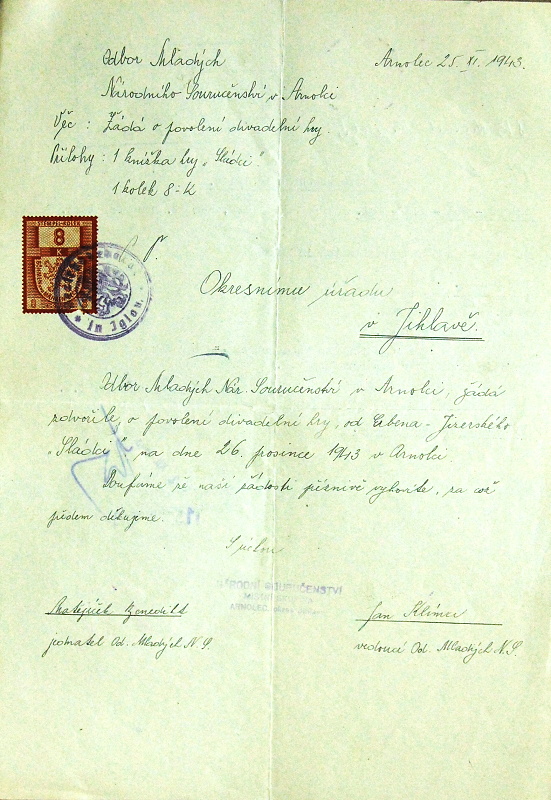 Odbor Mladých
Národního Souručenství v Arnolci
Arnolec 25. XI. 1943.
Věc : Žádá o povolení divadelní hry.
Přílohy : 1 knížka hry „Sládci".
1 kolek 8·-K
STEMPEL-KOLEK
8
K
8
8
in Iglau.
Okresnímu úřadu
v Jihlavě.
Odbor Mladých Nár. Souručenství v Arnolci, žádá
zdvořile o povolení divadelní hry, od Erbena-Jizerského
„Sládci" na dne 26. prosince 1943 v Arnolci.
Doufáme že naší žádosti příznivě vyhovíte, za což
předem děkujeme.
S úctou
NÁRODNÍ SOURUČENSTVÍ
ARNOLEC
Matějíček Benedikt
jednatel Od. Mladých N. S.
Jan Klíma
vedoucí Od. Mladých N. S.